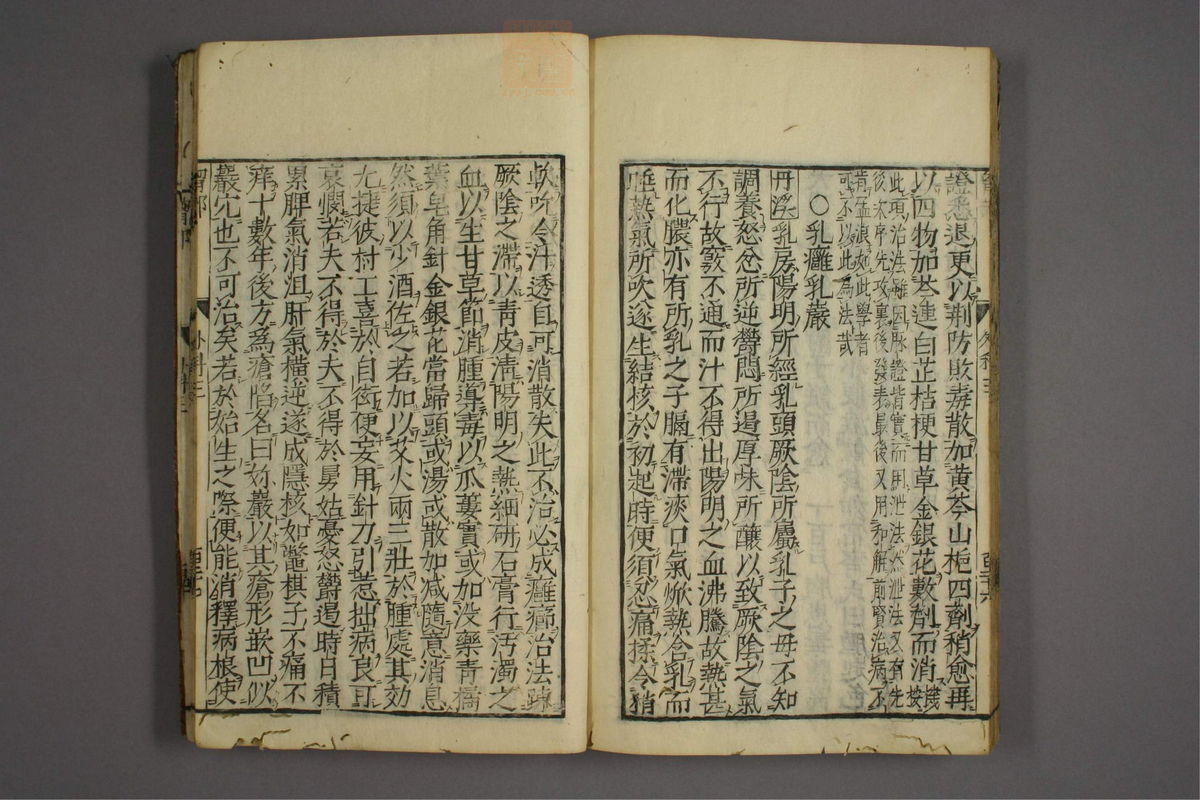 證悉退更以荆防敗毒散加黃芩山梔四劑稍愈再
以四物加芩連白芷桔梗甘草金銀花數劑而消按機
此項治法雖因脉證皆實而用泄法然泄法又有先
後次序先攻裏後發表最後又用和解前賢治病不
肯孟浪如此學者
可不以此爲法哉
○乳癰乳巖
丹溪乳房陽明所經乳頭厥陰所屬乳子之母不知
調養怒忿所逆鬱悶所遏厚味所釀以致厥陰之氣
不行故竅不通而汁不得出陽明之血沸騰故熱甚
而化膿亦有所乳之子膈有滯痰口氣焮熱含乳而
睡熱氣所吹遂生結核於初起時便須忍痛揉令稍
軟吮令汁透自可消散失此不治必成癰癤治法疎
厥陰之滯以青皮清陽明之熱細研石膏行汚濁之
血以生甘草節消腫導毒以瓜蔞實或加没藥青橘
葉皂角針金銀花當歸頭或湯或散加减隨意消息
然須以少酒佐之若加以艾火兩三壯於腫處其効
尤捷彼村工喜於自衒便妄用針刀引惹拙病良可
哀憫若夫不得於夫不得於舅姑憂怒鬱遏時日積
累脾氣消沮肝氣橫逆遂成隱核如鼈棋子不痛不
痒十數年後方爲瘡陷名曰妳巖以其瘡形嵌凹似
巖穴也不可治矣若於始生之際便能消釋病根使
外科三